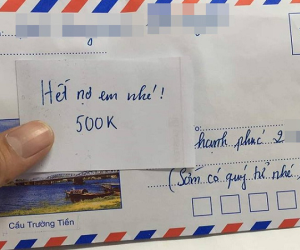 Hết nợ em nhé!
500K
hanh phúc 2
(Sớm có quý tử nhé
Cầu Trường Tiền